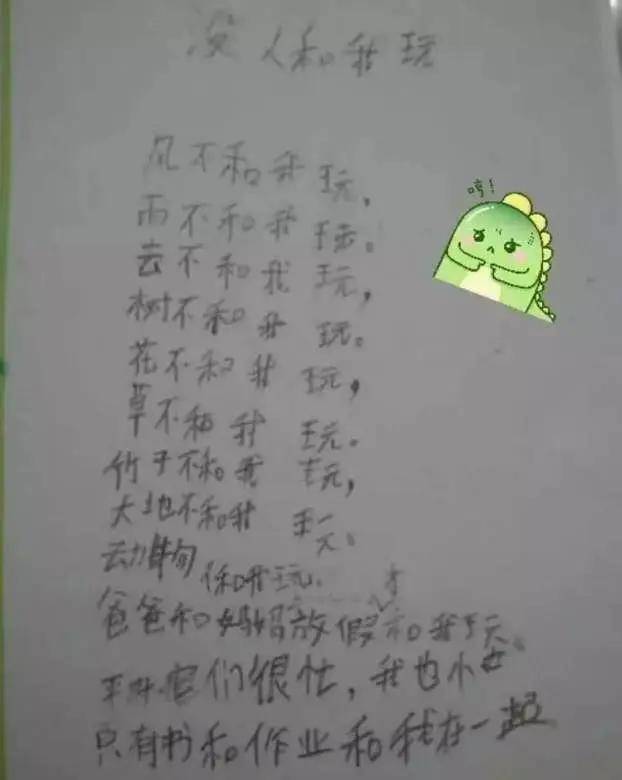 没人和我玩
风不和我玩，
哼！
雨不和我玩。
云不和我玩，
树不和我玩。
花不和我玩，
草不和我玩。
竹子不和我玩，
大地不和我玩。
动物 和我玩.
爸爸和妈妈放假才和我玩。
平时 们很忙，我也忙
只有书和作业和我在一起